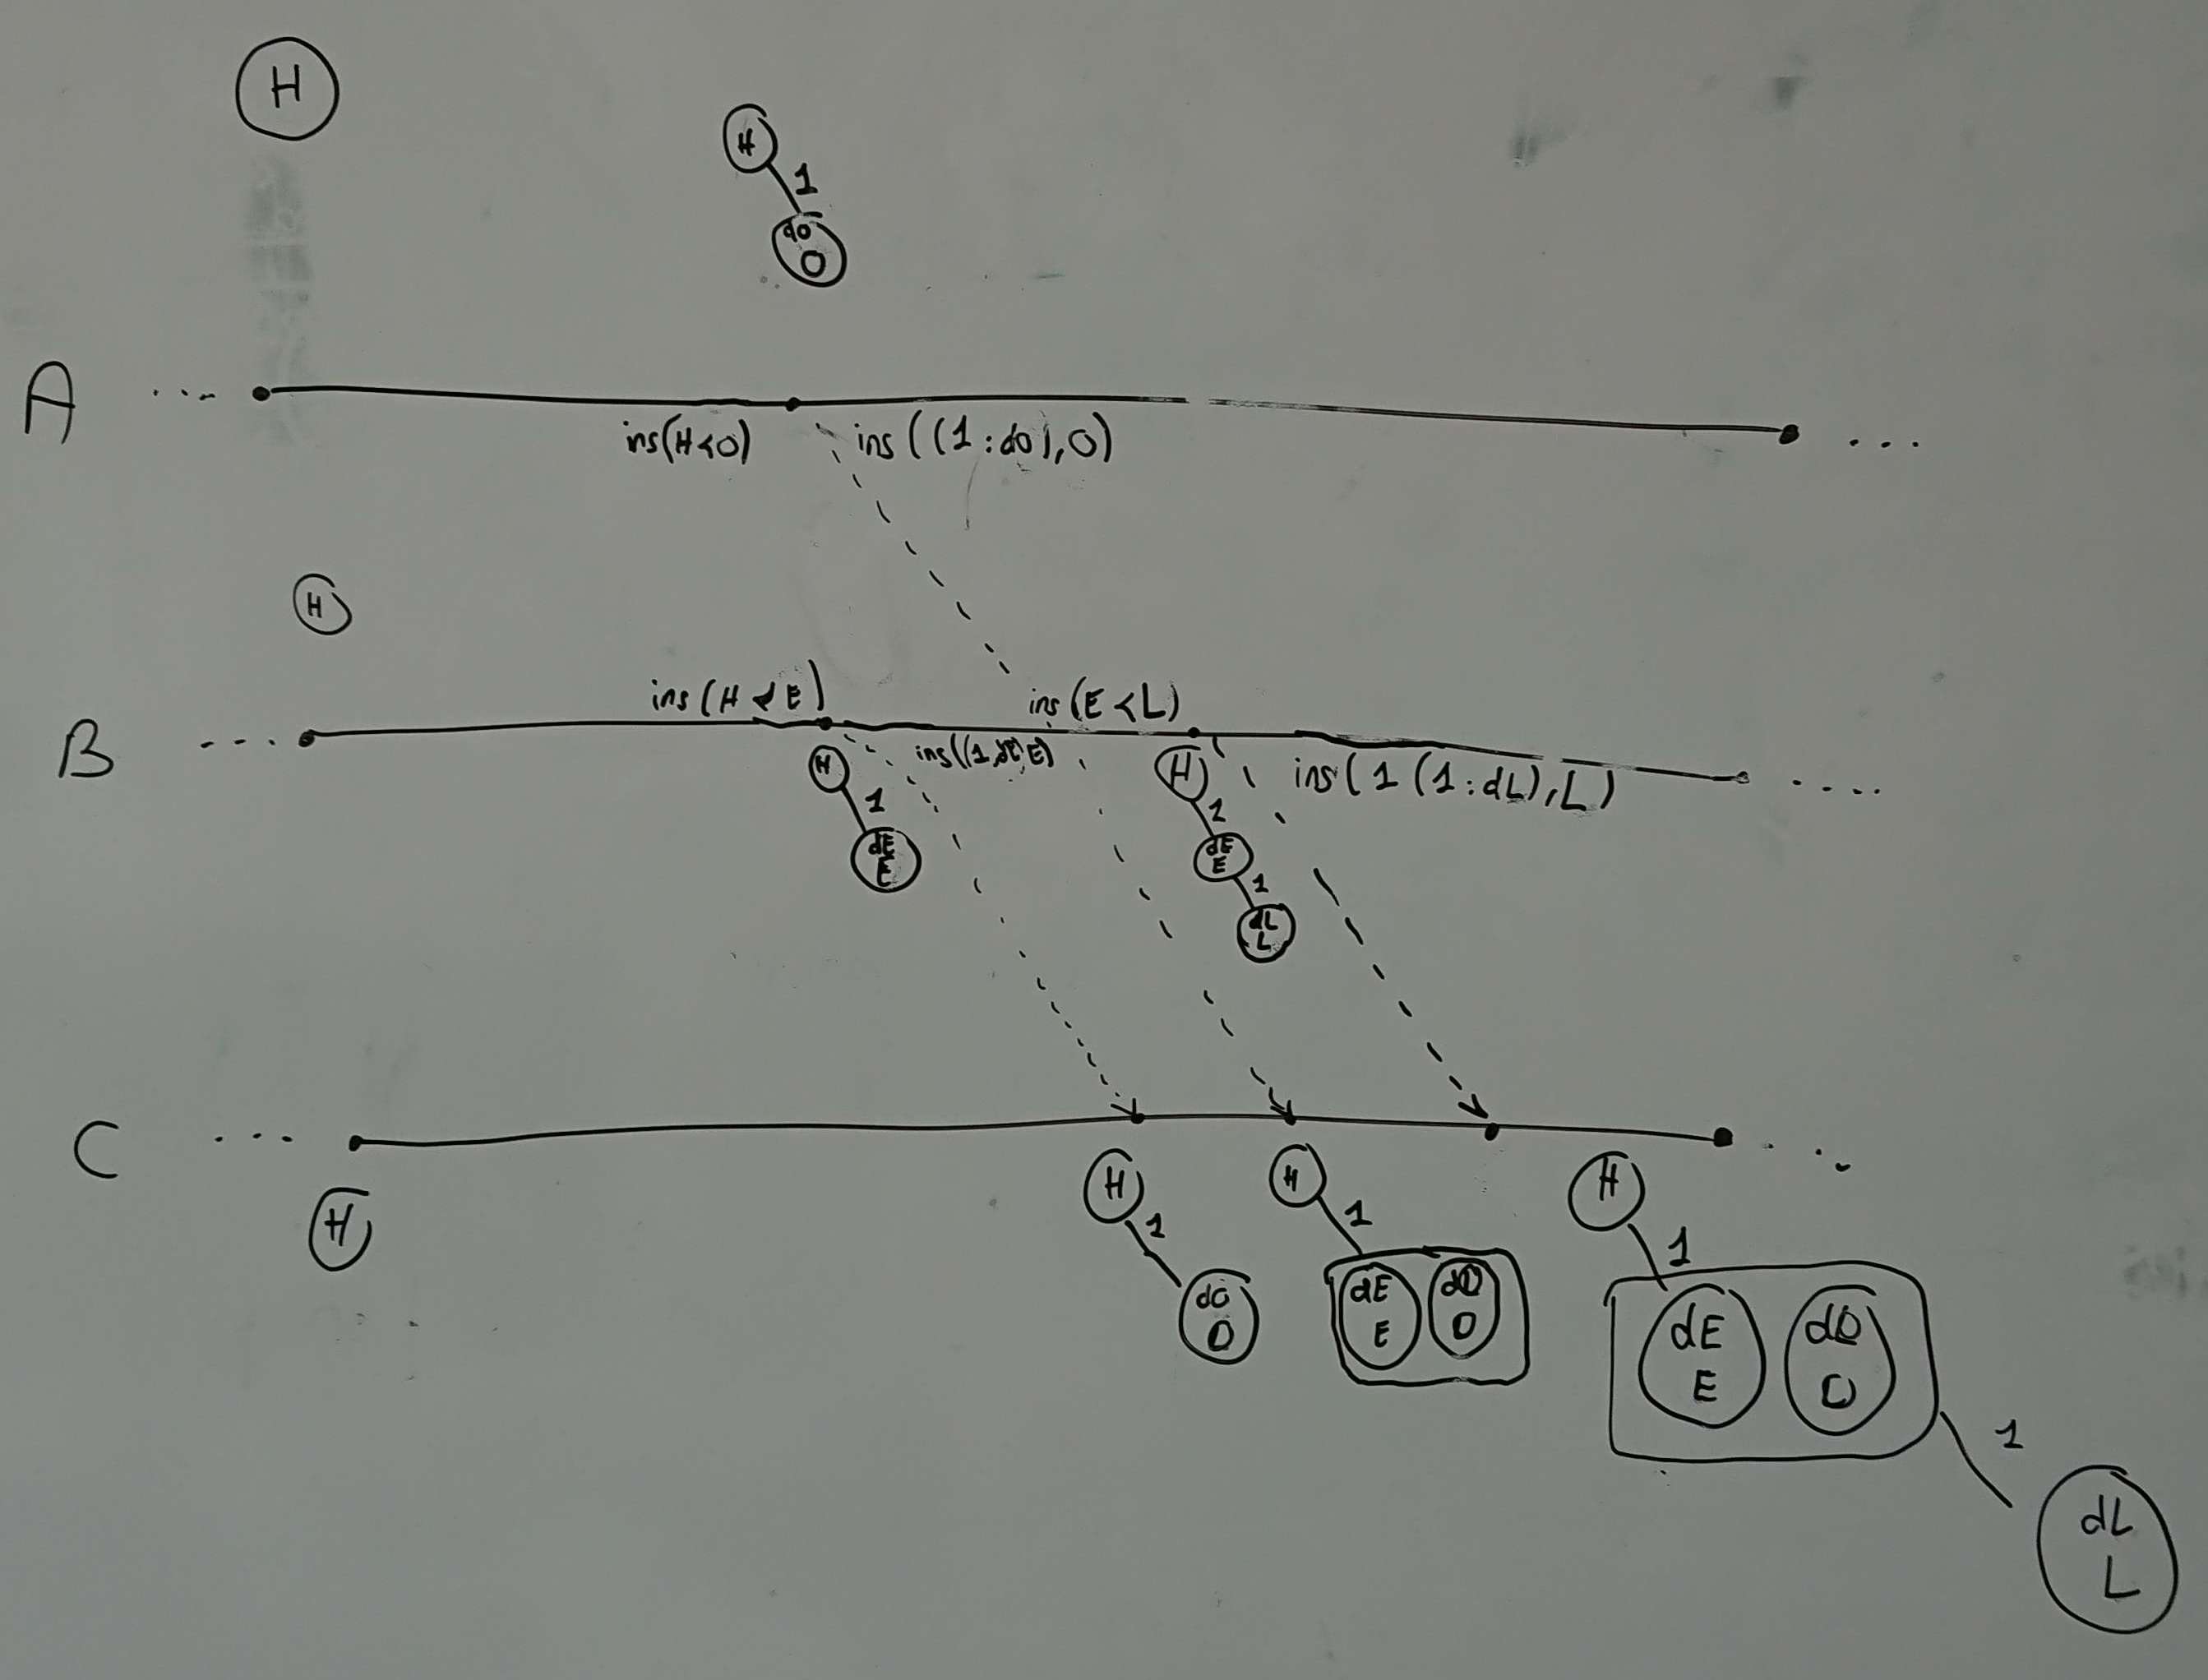 H
H
1
do
O
A
ins(H<O)
ins((1:do),O)
H
ins(H<E)
ins(E<L)
B
ins((1,dE),E)
ins(1(1:dL),L)
H
1
dE
E
H
1
dE
E
1
dL
L
C
H
H
1
do
O
H
1
dE
E
dO
O
H
1
dE
E
dO
O
1
dL
L